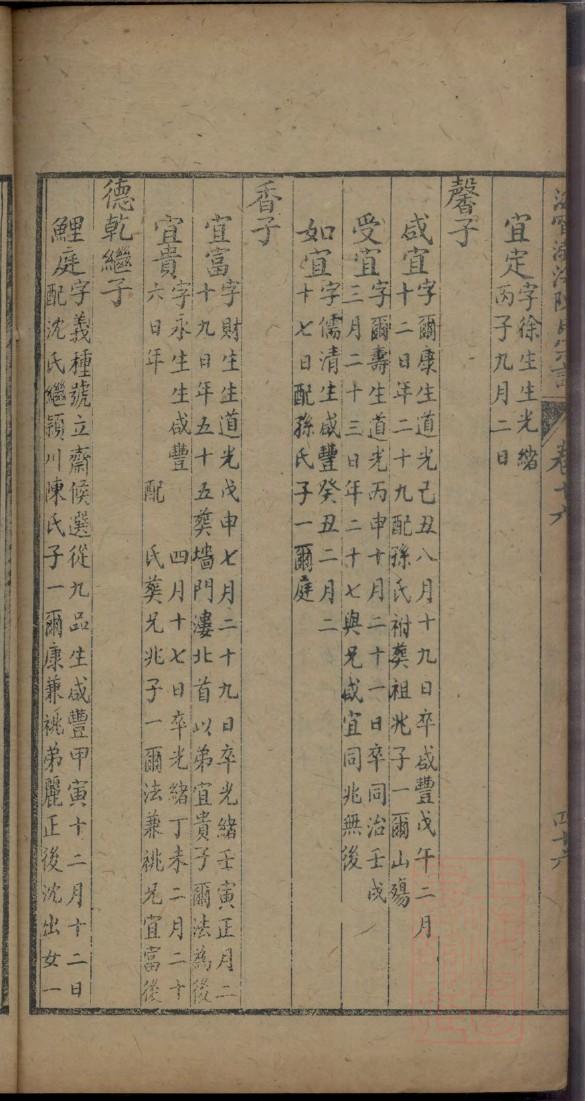 卷十六
四十六
宜定
字徐生生光緒
丙子九月二日
馨子
咸宜
字爾康生道光己丑八月十九日卒咸豐戊午二月
十二日年二十九配孫氏祔葬祖兆子一爾山殤
受宜
字爾壽生道光丙申十月二十一日卒同治壬戌
三月二十三日年二十七與兄咸宜同兆無後
如宜
字儒清生咸豐癸丑二月二
十七日配孫氏子一爾庭
香子
宜富
字財生生道光戊申七月二十九日卒光緒壬寅正月二
十九日年五十五葬墻門漊北首以弟宜貴子爾法為後
宜貴
字永生生咸豐 四月十七日卒光緒丁未二月二十
六日年 配 氏葬兄兆子一爾法兼祧兄宜富後
德乾繼子
鯉庭
字義種號立齋候選從九品生咸豐甲寅十二月十二日
配沈氏繼潁川陳氏子一爾康兼祧弟麗正後沈出女一